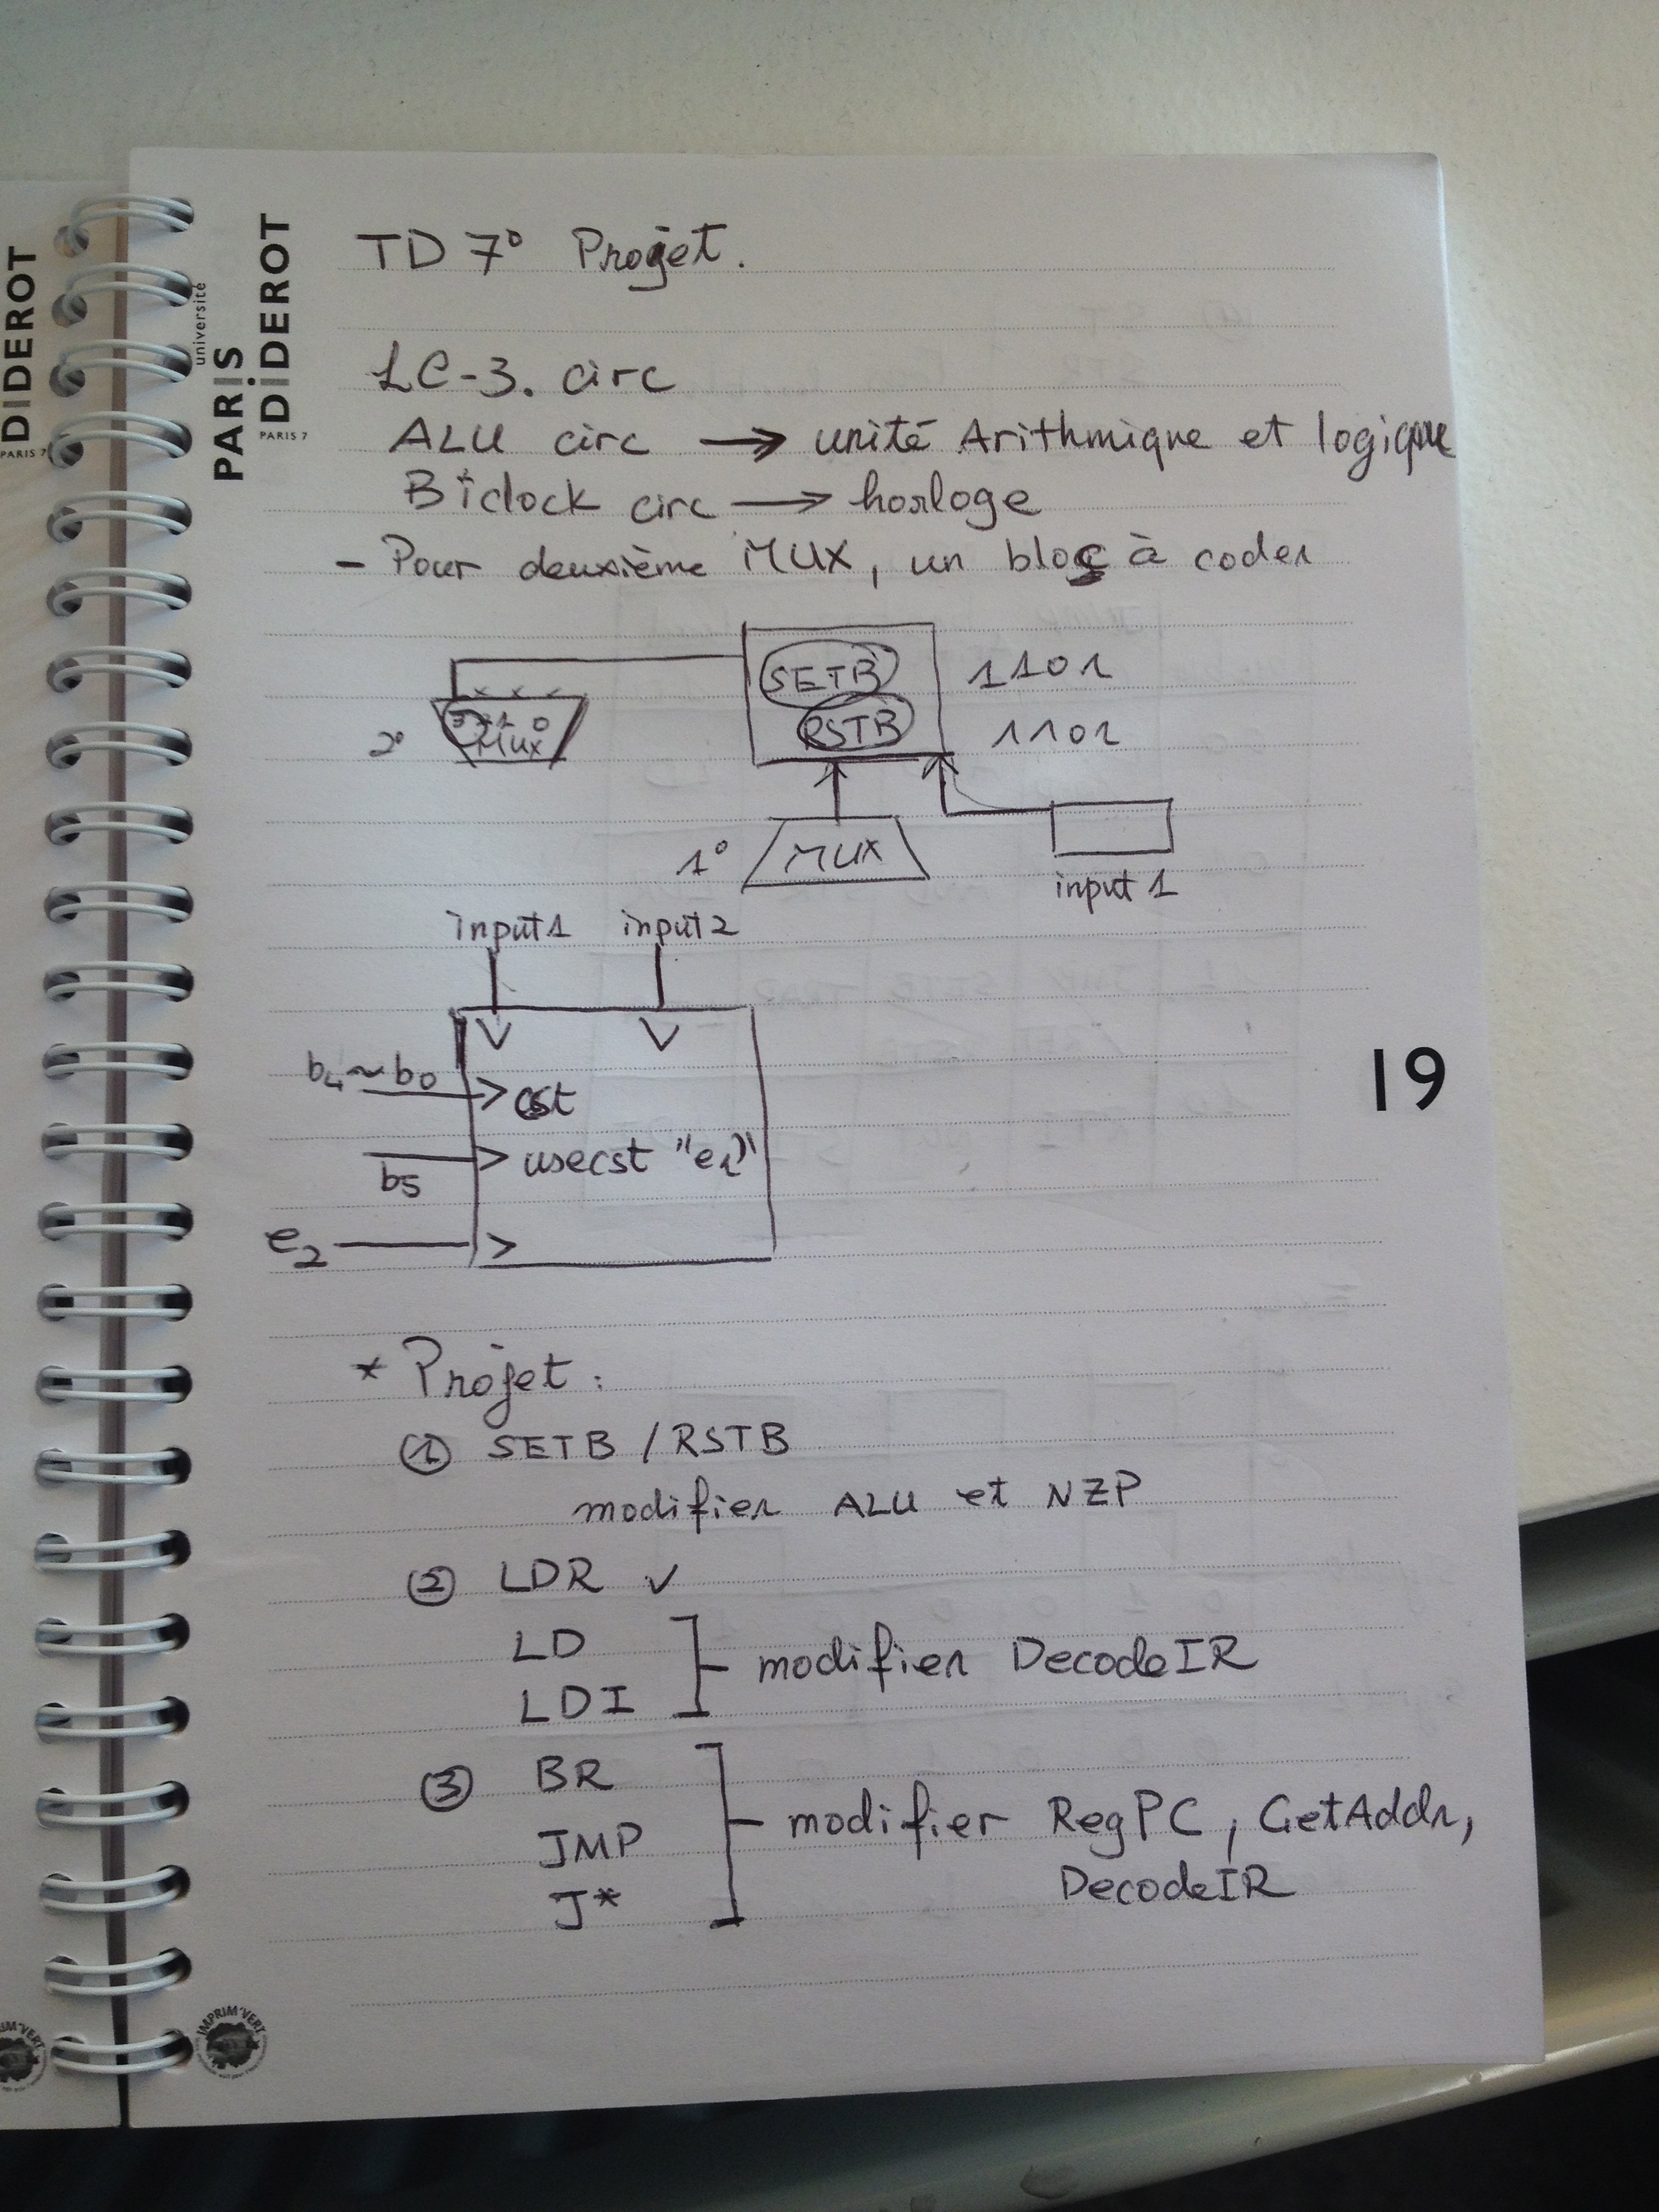 DIDEROT
PARIS 7
université
PARIS
DIDEROT
PARIS 7
TD 7° Projet.
LC-3. circ
ALU circ → unité Arithmique et logique
Biclock circ → horloge
- Pour deuxième MUX, un bloc à coder
SETB 1101
RSTB 1101
2° MUX
1° MUX
input 1
input1 input2
b4 ~ b0 cst
b5 usecst "e1"
e2
* Projet :
① SETB / RSTB
modifier ALU et NZP
② LDR ✓
LD
LDI
modifier DecodeIR
③ BR
JMP
J*
modifier RegPC, GetAddr,
DecodeIR
19
IMPRIM'VERT